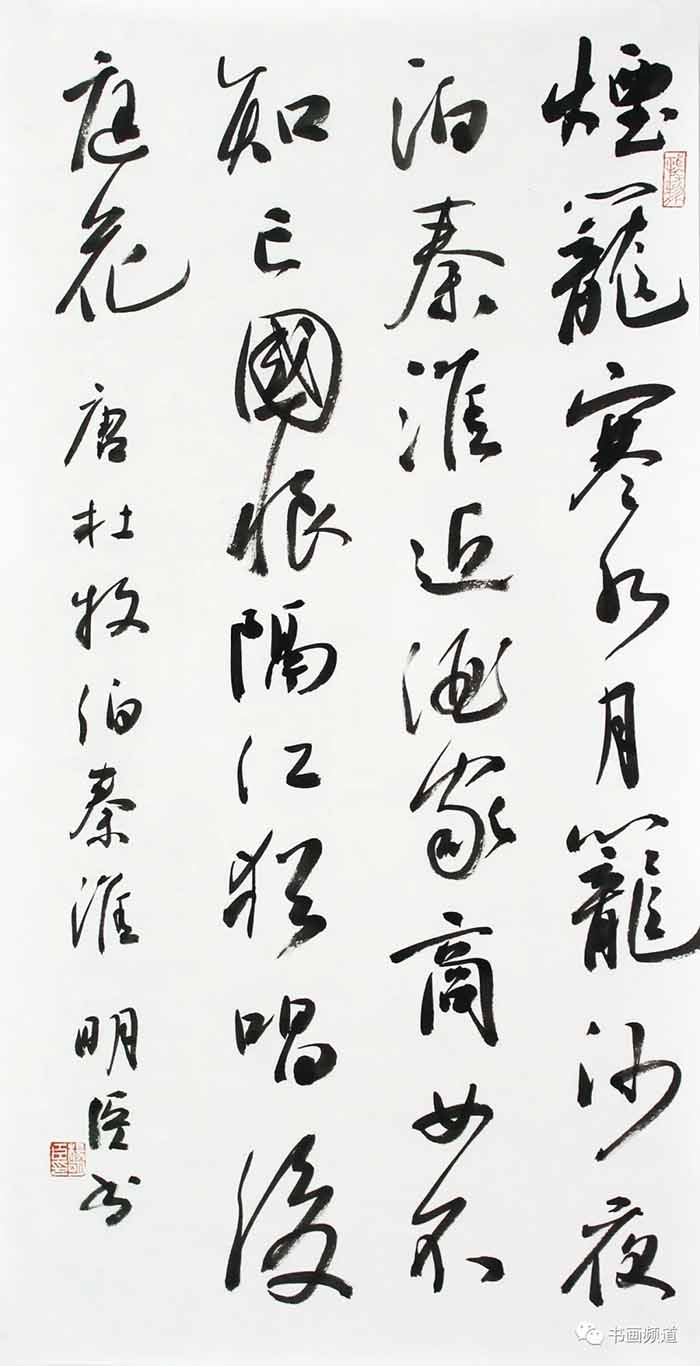 煙籠寒水月籠沙夜
泊秦淮近酒家商女不
知亡國恨隔江猶唱後
庭花
唐杜牧泊秦淮 明臣书
书画频道